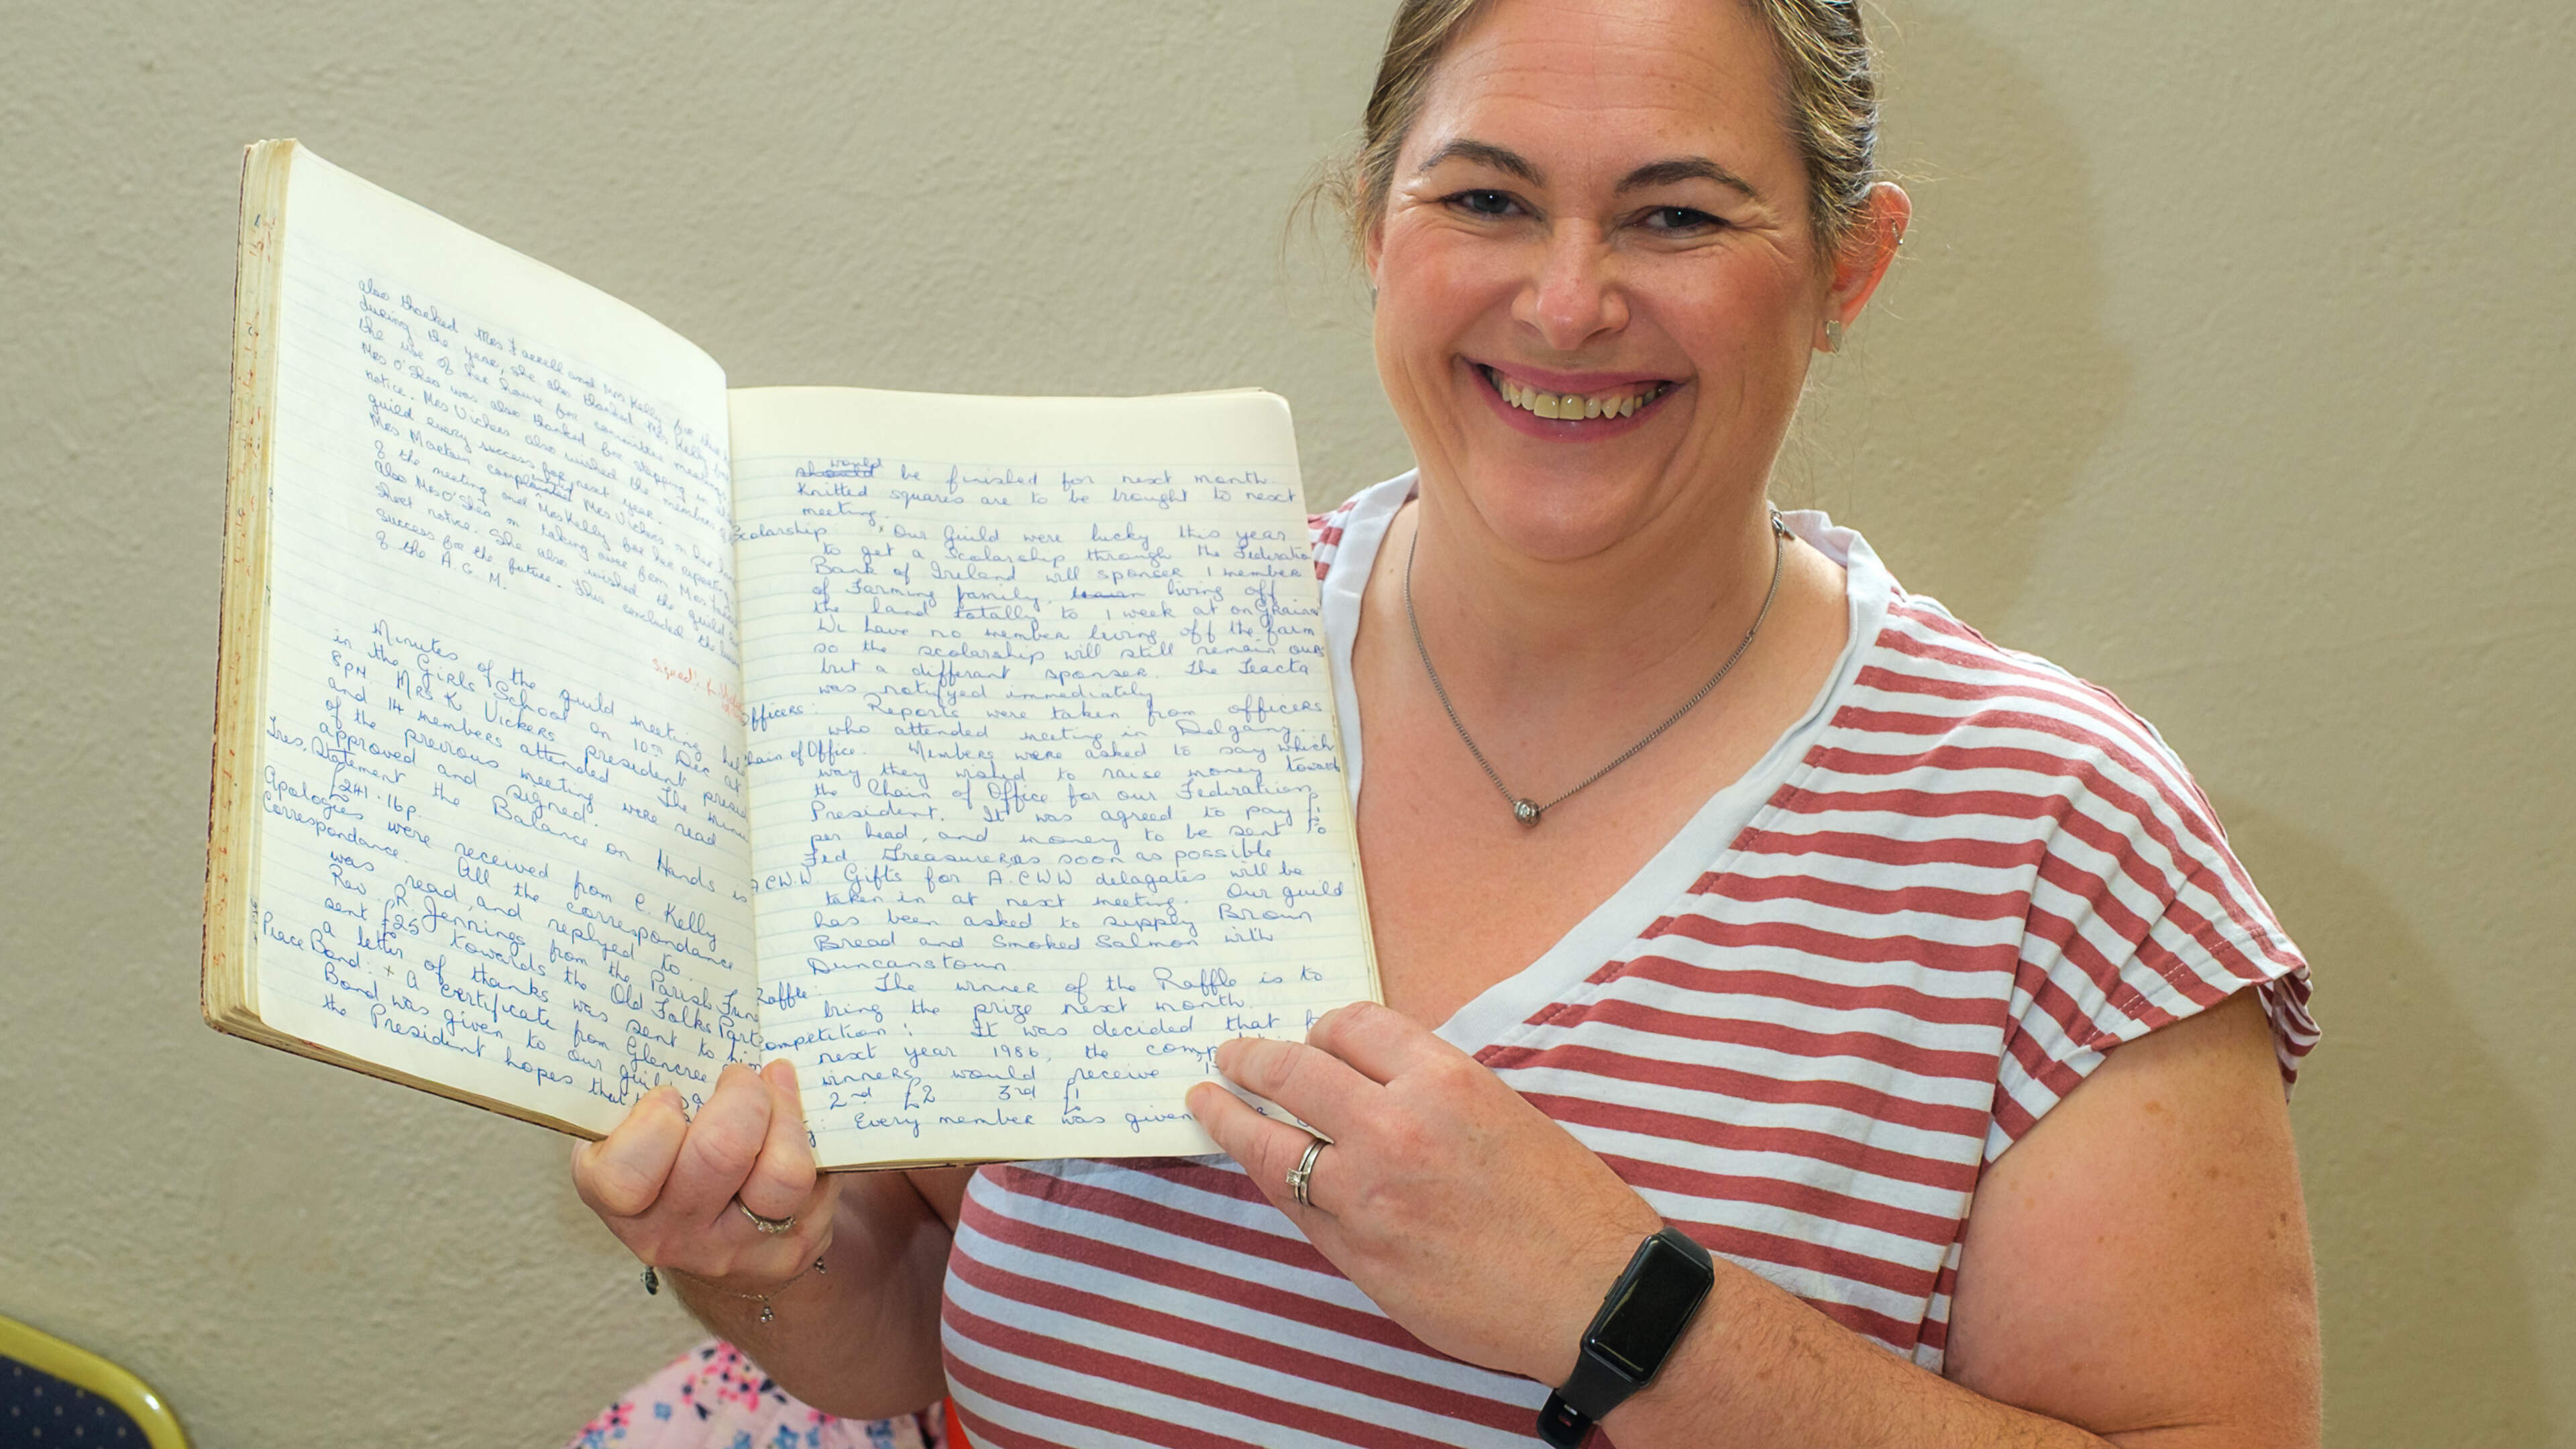 also thanked Mrs Farrell and Mrs Kelly for
during the year, she also thanked Mrs Kelly for
the use of her house for committee meetings
Mrs O'Shea was also thanked for stepping in at
notice. Mrs Vickers also wished the members of
guild every success for next year.
Mrs Martain Mrs Vickers on her
of the meeting and Mrs Kelly for her
also Mrs O'Shea on taking over from Mrs
short notice. She also wished the guild
success for the future. This concluded the
of the A.G.M.
Signed:
Minutes of the guild meeting held
in the Girls School on 10TH Dec at
8pm. MRS K Vickers president
and 14 members attended. The
of the previous meeting were read
approved and signed.
Tres. Statement the Balance on Hands is
£241.16p.
Apologies were received from C. Kelly
Correspondance. All the correspondance
was read and replyed to.
Rev R Jennings from the Parish
sent £25 towards the Old Folks
a letter of thanks was sent to him
Peace Bond: x A certificate from Glencree
Bond was given to our guild
the President hopes that
should would be finished for next month.
Knitted squares are to be brought to next
meeting.
Scolarship Our Guild were lucky this year
to get a scolarship through the Federation
Bank of Ireland will sponser 1 member
of Farming family living off
the land totally to 1 week at an Grainan
We have no member living off the farm
so the scolarship will still remain ours
but a differant sponser. The Teacta
was notifyed immediately
Officers: Reports were taken from officers
who attended meeting in Delgany.
Chain of Office. Members were asked to say which
way they wished to raise money towards
the Chain of Office for our Federation
President. It was agreed to pay £1
per head, and money to be sent to
Fed Treasurer as soon as possible
A.C.W.W. Gifts for A.C.W.W delagates will be
taken in at next meeting. Our guild
has been asked to supply Brown
Bread and Smoked Salmon with
Duncanstown.
Raffle: The winner of the Raffle is to
bring the prize next month.
Competition: It was decided that
next year 1986, the
winners would receive
2nd £2 3rd £1
Every member was given